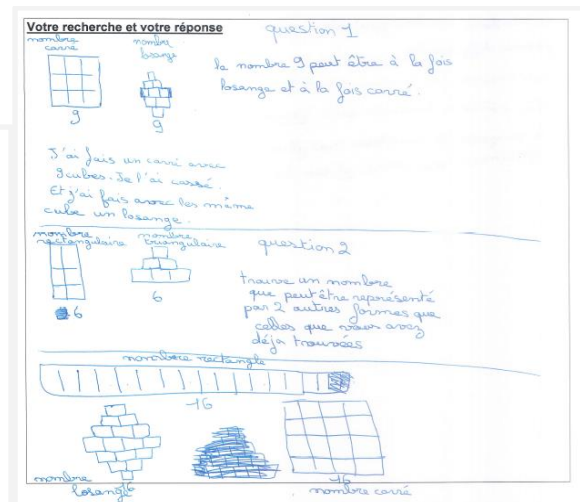 Votre recherche et votre réponse
question 1
nombre
carré
nombre
losange
9
9
le nombre 9 peut être à la fois
losange et à la fois carré.
J'ai fais un carré avec
9 cubes. Je l'ai cassé.
Et j'ai fais avec les même
cube un losange.
nombre
rectangulaire
nombre
triangulaire
question 2
6
6
trouve un nombre
que peut être représenté
par 2 autres formes que
celles que vous avez
déja trouvées
nombre rectangle
16
nombre
losange
16
16
nombre carré